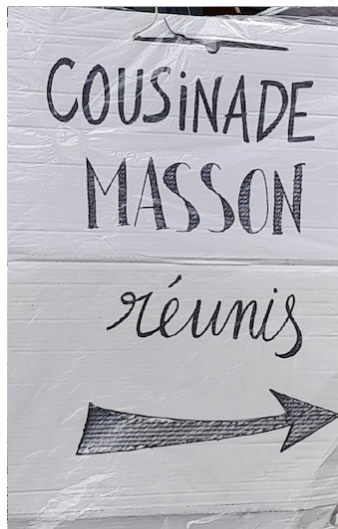 COUSiNADE
MASSON
réunis